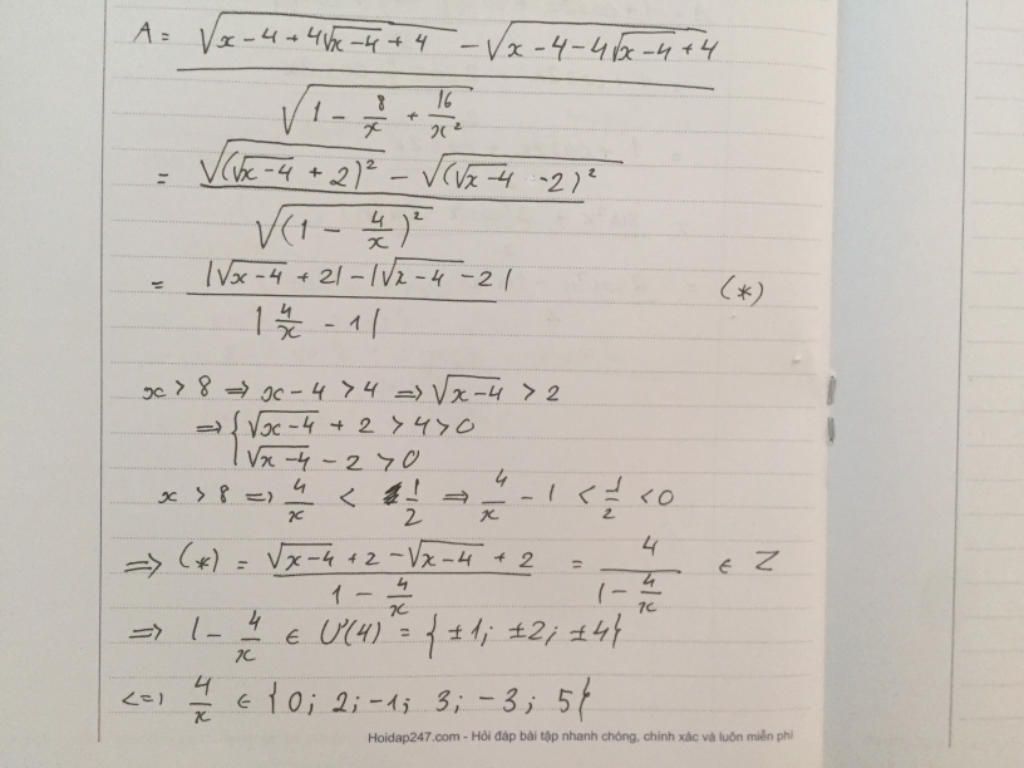 A = (√(x - 4 + 4√(x-4) + 4) - √(x - 4 - 4√(x-4) + 4)) / √(1 - 8/x + 16/x²)
= (√((√(x-4) + 2)²) - √((√(x-4) - 2)²)) / √((1 - 4/x)²)
= (|√(x-4) + 2| - |√(x-4) - 2|) / |4/x - 1| (*)
x > 8 => x - 4 > 4 => √(x-4) > 2
=> { √(x-4) + 2 > 4 > 0
√(x-4) - 2 > 0
x > 8 => 4/x < 1/2 => 4/x - 1 < 1/2 < 0
=> (*) = (√(x-4) + 2 - √(x-4) + 2) / (1 - 4/x) = 4 / (1 - 4/x) ∈ Z
=> 1 - 4/x ∈ Ư(4) = {±1; ±2; ±4}
<=> 4/x ∈ {0; 2; -1; 3; -3; 5}
Hoidap247.com - Hỏi đáp bài tập nhanh chóng, chính xác và luôn miễn phí